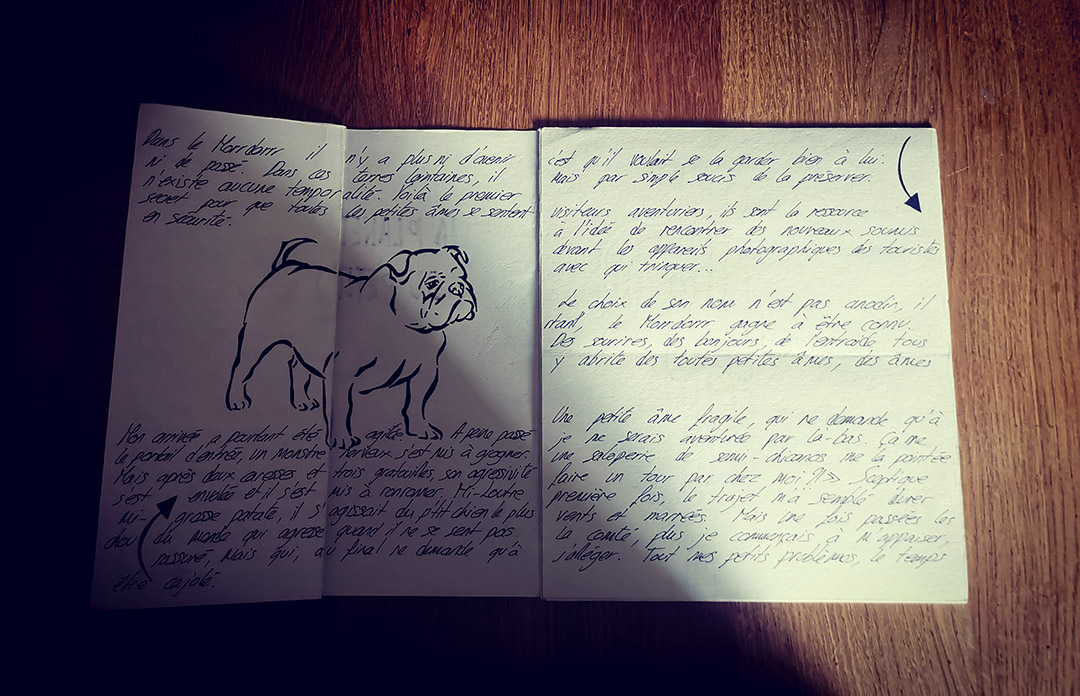 Dans le Morrdorrr il n'y a plus ni d'avenir
ni de passé. Dans ces terres lointaines, il
n'existe aucune temporalité. Voilà le premier
secret pour que toutes les petites âmes se sentent
en sécurité.
Mon arrivée a pourtant été agitée. A peine passé
le portail d'entrée, un monstre morveux s'est mis à grogner.
Mais après deux caresses et trois gratouilles, son agressivité
s'est envolée et il s'est mis à ronronner. Mi-loutre
mi-grosse patate, il s'agissait du p'tit chien le plus
doux du monde qui agresse quand il ne se sent pas
rassuré, mais qui, au final ne demande qu'à
être cajolé.
c'est qu'il voulait se la garder bien à lui.
Mais par simple soucis de la préserver.
visiteurs aventuriers, ils sont la ressource
à l'idée de rencontrer des nouveaux
devant les appareils photographiques des touristes
avec qui trinquer...
Le choix de son nom n'est pas anodin, il
rtant, le Morrdorrr gagne à être connu.
Des sourires, des bonjours, de l'entraide tous
y abrite des toutes petites âmes, des âmes
Une petite âme fragile, qui ne demande qu'à
je ne serais aventurée par là-bas. Ça me
une saloperie de me la pointée
faire un tour par chez moi ?!» Sceptique
première fois, le trajet m'a semblé durer
vents et marrées. Mais une fois passées les
la comté, plus je commençais à m'appaiser,
s'alléger. Tout mes petits problèmes, le temps